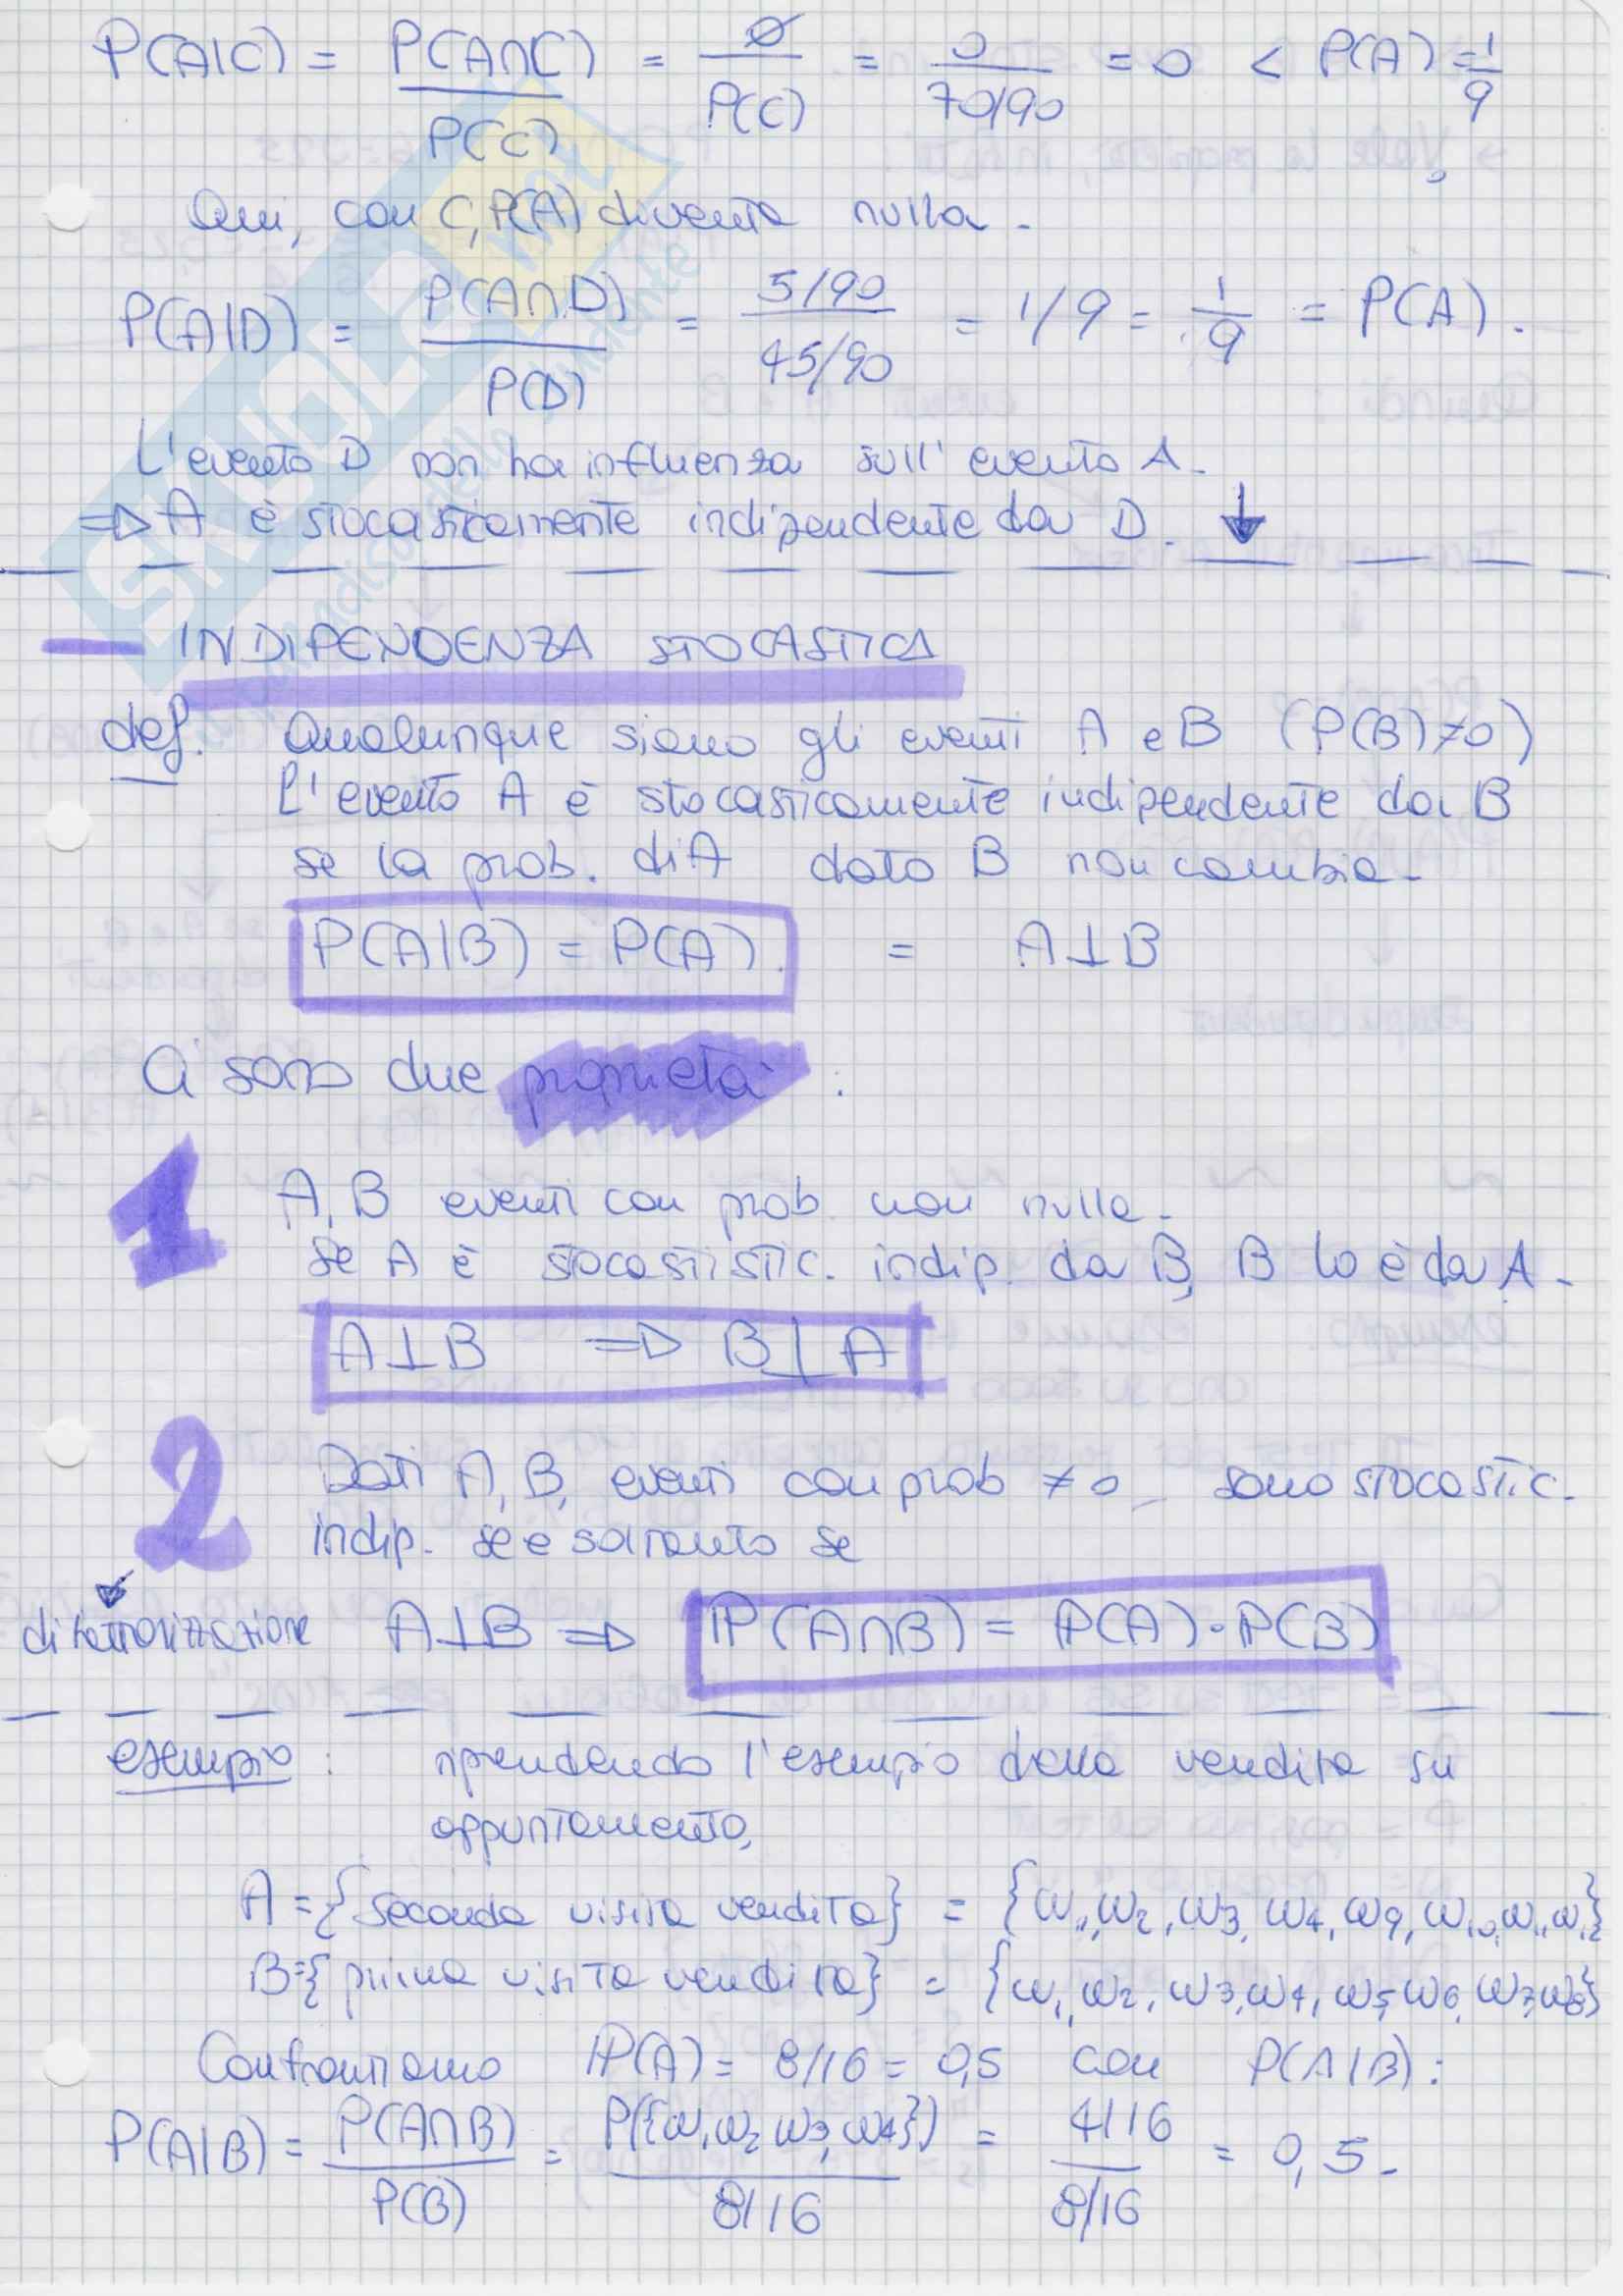 P(A|C) = P(A∩C) / P(C) = ∅ / P(C) = 0 / 70/90 = 0 < P(A) = 1/9
Qui, con C, P(A) diventa nulla.
P(A|D) = P(A∩D) / P(D) = 5/90 / 45/90 = 1/9 = 1/9 = P(A).
L'evento D non ha influenza sull'evento A.
=> A è stocasticamente indipendente da D. ↓
— INDIPENDENZA STOCASTICA
def. Qualunque siano gli eventi A e B (P(B)≠0)
l'evento A è stocasticamente indipendente da B
se la prob. di A dato B non cambia.
P(A|B) = P(A). = A⊥B
Ci sono due proprietà:
1 A, B eventi con prob. non nulla.
Se A è stocastistic. indip. da B, B lo è da A.
A⊥B => B⊥A
2 Dati A, B, eventi con prob ≠0 sono stocastic.
indip. se e soltanto se
di fattorizzazione A⊥B => P(A∩B) = P(A)·P(B)
esempio: riprendendo l'esempio della vendita su
appuntamento,
A = {seconda visita vendita} = {ω1, ω2, ω3, ω4, ω9, ω10, ω11, ω12}
B = {prima visita vendita} = {ω1, ω2, ω3, ω4, ω5, ω6, ω7, ω8}
Confrontiamo P(A) = 8/16 = 0,5 con P(A|B):
P(A|B) = P(A∩B) / P(B) = P({ω1, ω2, ω3, ω4}) / 8/16 = 4/16 / 8/16 = 0,5.